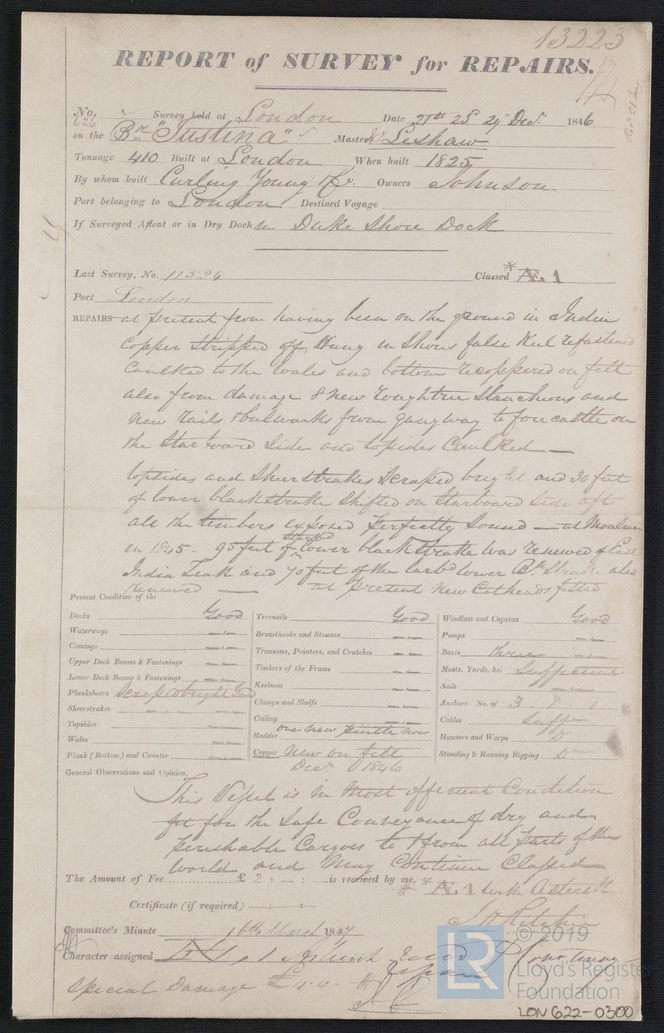 13223
REPORT of SURVEY for REPAIRS.
No. 626 Survey held at London Date 21st 23d 29 Decr. 1846
on the Bk "Justina" Master Leshaw
Tonnage 410 Built at London When built 1825
By whom built Curling Young & Co. Owners Johnson
Port belonging to London Destined Voyage
If Surveyed Afloat or in Dry Dock in Duke Shore Dock
Last Survey, No. 11524 Classed *Æ1
Port London
REPAIRS at present from having been on the ground in India
Copper stripped off, Hung in Shores false Keel refastened
Caulked to the wales and bottom recoppered on felt
also from damage 8 new Roughtree Stancheons and
new rails & bulwarks from gangway to forecastle on
the Starboard side and topsides Caulked
topsides and Sheerstrakes scraped bright and 30 feet
of lower blackstrake shifted on Starboard side aft
all the timbers exposed perfectly sound — at
in 1845 - 95 feet of starbd lower black strake was renewed of East
India Teak and 70 feet of the larbd lower Bk Strake also
renewed — at present new Catheads fitted
Present Condition of the
Decks Good
Waterways
Comings
Upper Deck Beams & Fastenings
Lower Deck Beams & Fastenings
Planksheers Scraped bright Good
Sheerstrakes
Topsides
Wales
Plank (Bottom) and Counter
Treenails Good
Breasthooks and Stemson
Transoms, Pointers, and Crutches
Timbers of the Frame
Keelsons
Clamps and Shelfs
Ceiling
Rudder one new pintle now
Copper New on felt
Decr. 1846
Windlass and Capstan Good
Pumps
Boats three
Masts, Yards, &c. Sufficient
Sails
Anchors No. of 3 1
Cables Sufft
Hawsers and Warps Do
Standing & Running Rigging Do
General Observations and Opinion,
This Vessel is in most efficient Condition
fit for the Safe Conveyance of dry and
perishable Cargoes to & from all parts of the
World and may Continue Classed
The Amount of Fee £ 2 : - : - is received by me, *Æ1 with Asterisk
Certificate (if required) - : - :
Committee's Minute 16th March 1847
Character assigned
Special Damage £
© 2019
LR
Lloyd's Register
Foundation
LON 622-0300